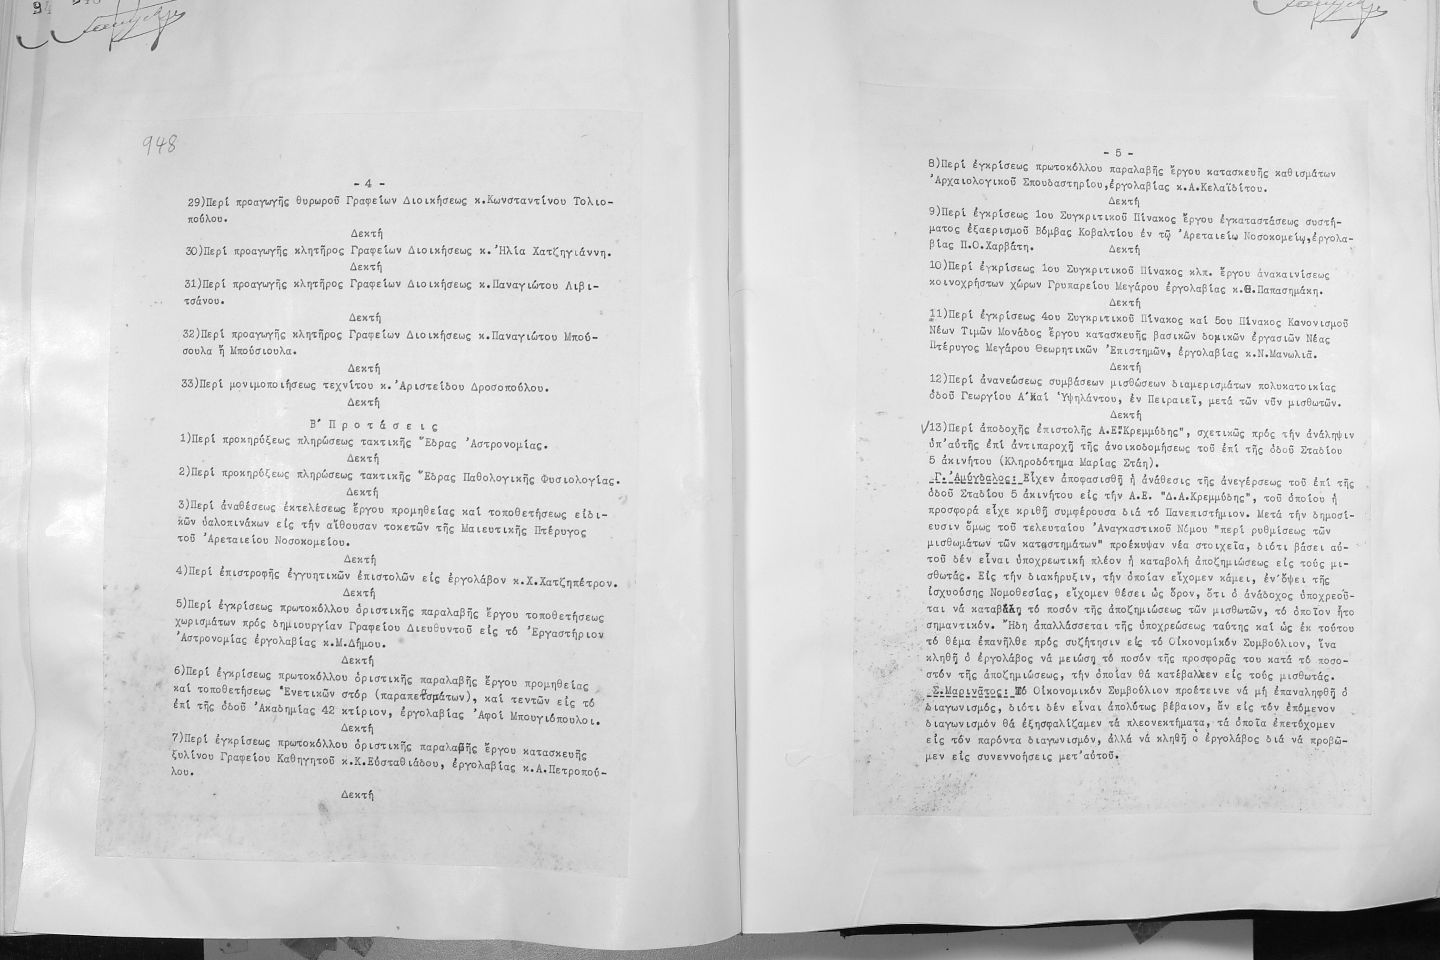 948
- 4 -
29)Περί προαγωγῆς θυρωροῦ Γραφείων Διοικήσεως κ.Κωνσταντίνου Τολιο-
πούλου.
Δεκτή
30)Περί προαγωγῆς κλητῆρος Γραφείων Διοικήσεως κ.Ἠλία Χατζηγιάννη.
Δεκτή
31)Περί προαγωγῆς κλητῆρος Γραφείων Διοικήσεως κ.Παναγιώτου Λιβι-
τσάνου.
Δεκτή
32)Περί προαγωγῆς κλητῆρος Γραφείων Διοικήσεως κ.Παναγιώτου Μπού-
σουλα ἤ Μπούσιουλα.
Δεκτή
33)Περί μονιμοποιήσεως τεχνίτου κ.Ἀριστείδου Δροσοπούλου.
Δεκτή
Β' Π ρ ο τ ά σ ε ι ς
1)Περί προκηρύξεως πληρώσεως τακτικῆς Ἕδρας Ἀστρονομίας.
Δεκτή
2)Περί προκηρύξεως πληρώσεως τακτικῆς Ἕδρας Παθολογικῆς Φυσιολογίας.
Δεκτή
3)Περί ἀναθέσεως ἐκτελέσεως ἔργου προμηθείας καί τοποθετήσεως εἰδι-
κῶν ὑαλοπινάκων εἰς τήν αἴθουσαν τοκετῶν τῆς Μαιευτικῆς Πτέρυγος
τοῦ Ἀρεταιείου Νοσοκομείου.
Δεκτή
4)Περί ἐπιστροφῆς ἐγγυητικῶν ἐπιστολῶν εἰς ἐργολάβον κ.Χ.Χατζηπέτρον.
Δεκτή
5)Περί ἐγκρίσεως πρωτοκόλλου ὁριστικῆς παραλαβῆς ἔργου τοποθετήσεως
χωρισμάτων πρός δημιουργίαν Γραφείου Διευθυντοῦ εἰς τό Ἐργαστήριον
Ἀστρονομίας ἐργολαβίας κ.Μ.Δήμου.
Δεκτή
6)Περί ἐγκρίσεως πρωτοκόλλου ὁριστικῆς παραλαβῆς ἔργου προμηθείας
καί τοποθετήσεως Ἐνετικῶν στόρ (παραπετσμάτων), καί τεντῶν εἰς τό
ἐπί τῆς ὁδοῦ Ἀκαδημίας 42 κτίριον, ἐργολαβίας Ἀφοί Μπουγιόπουλοι.
Δεκτή
7)Περί ἐγκρίσεως πρωτοκόλλου ὁριστικῆς παραλαβῆς ἔργου κατασκευῆς
ξυλίνου Γραφείου Καθηγητοῦ κ.Κ.Εὐσταθιάδου, ἐργολαβίας κ.Α.Πετροπού-
λου.
Δεκτή
- 5 -
8)Περί ἐγκρίσεως πρωτοκόλλου παραλαβῆς ἔργου κατασκευῆς καθισμάτων
Ἀρχαιολογικοῦ Σπουδαστηρίου,ἐργολαβίας κ.Α.Κελαϊδίτου.
Δεκτή
9)Περί ἐγκρίσεως 1ου Συγκριτικοῦ Πίνακος ἔργου ἐγκαταστάσεως συστή-
ματος ἐξαερισμοῦ Βόμβας Κοβαλτίου ἐν τῷ Ἀρεταιείῳ Νοσοκομείῳ,ἐργολα-
βίας Π.Ο.Χαρβάτη.
Δεκτή
10)Περί ἐγκρίσεως 1ου Συγκριτικοῦ Πίνακος κλπ. ἔργου ἀνακαινίσεως
κοινοχρήστων χώρων Γρυπαρείου Μεγάρου ἐργολαβίας κ.Θ.Παπασημάκη.
Δεκτή
11)Περί ἐγκρίσεως 4ου Συγκριτικοῦ Πίνακος καί 5ου Πίνακος Κανονισμοῦ
Νέων Τιμῶν Μονάδος ἔργου κατασκευῆς βασικῶν δομικῶν ἐργασιῶν Νέας
Πτέρυγος Μεγάρου Θεωρητικῶν Ἐπιστημῶν, ἐργολαβίας κ.Ν.Μανωλιᾶ.
Δεκτή
12)Περί ἀνανεώσεως συμβάσεων μισθώσεων διαμερισμάτων πολυκατοικίας
ὁδοῦ Γεωργίου Α΄καί Ὑψηλάντου, ἐν Πειραιεῖ, μετά τῶν νῦν μισθωτῶν.
Δεκτή
13)Περί ἀποδοχῆς ἐπιστολῆς Α.Ε."Κρεμμύδης", σχετικῶς πρός τήν ἀνάληψιν
ὑπ'αὐτῆς ἐπί ἀντιπαροχῇ τῆς ἀνοικοδομήσεως τοῦ ἐπί τῆς ὁδοῦ Σταδίου
5 ἀκινήτου (Κληροδότημα Μαρίας Στάη).
Γ.Ἀμύγδαλος: Εἶχεν ἀποφασισθῆ ἡ ἀνάθεσις τῆς ἀνεγέρσεως τοῦ ἐπί τῆς
ὁδοῦ Σταδίου 5 ἀκινήτου εἰς τήν Α.Ε. "Δ.Α.Κρεμμύδης", τοῦ ὁποίου ἡ
προσφορά εἶχε κριθῆ συμφέρουσα διά τό Πανεπιστήμιον. Μετά τήν δημοσί-
ευσιν ὅμως τοῦ τελευταίου Ἀναγκαστικοῦ Νόμου "περί ρυθμίσεως τῶν
μισθωμάτων τῶν καταστημάτων" προέκυψαν νέα στοιχεῖα, διότι βάσει αὐ-
τοῦ δέν εἶναι ὑποχρεωτική πλέον ἡ καταβολή ἀποζημιώσεως εἰς τούς μι-
σθωτάς. Εἰς τήν διακήρυξιν, τήν ὁποίαν εἴχομεν κάμει, ἐν'ὄψει τῆς
ἰσχυούσης Νομοθεσίας, εἴχομεν θέσει ὡς ὅρον, ὅτι ὁ ἀνάδοχος ὑποχρεοῦ-
ται νά καταβάλῃ τό ποσόν τῆς ἀποζημιώσεως τῶν μισθωτῶν, τό ὁποῖον ἦτο
σημαντικόν. Ἤδη ἀπαλλάσσεται τῆς ὑποχρεώσεως ταύτης καί ὡς ἐκ τούτου
τό θέμα ἐπανῆλθε πρός συζήτησιν εἰς τό Οἰκονομικόν Συμβούλιον, ἵνα
κληθῇ ὁ ἐργολάβος νά μειώσῃ τό ποσόν τῆς προσφορᾶς του κατά τό ποσο-
στόν τῆς ἀποζημιώσεως, τήν ὁποίαν θά κατέβαλλεν εἰς τούς μισθωτάς.
Σ.Μαρινᾶτος: Τό Οἰκονομικόν Συμβούλιον προέτεινε νά μή ἐπαναληφθῇ ὁ
διαγωνισμός, διότι δέν εἶναι ἀπολύτως βέβαιον, ἄν εἰς τόν ἑπόμενον
διαγωνισμόν θά ἐξησφαλίζαμεν τά πλεονεκτήματα, τά ὁποῖα ἐπετύχομεν
εἰς τόν παρόντα διαγωνισμόν, ἀλλά νά κληθῇ ὁ ἐργολάβος διά νά προβῶ-
μεν εἰς συνεννοήσεις μετ'αὐτοῦ.